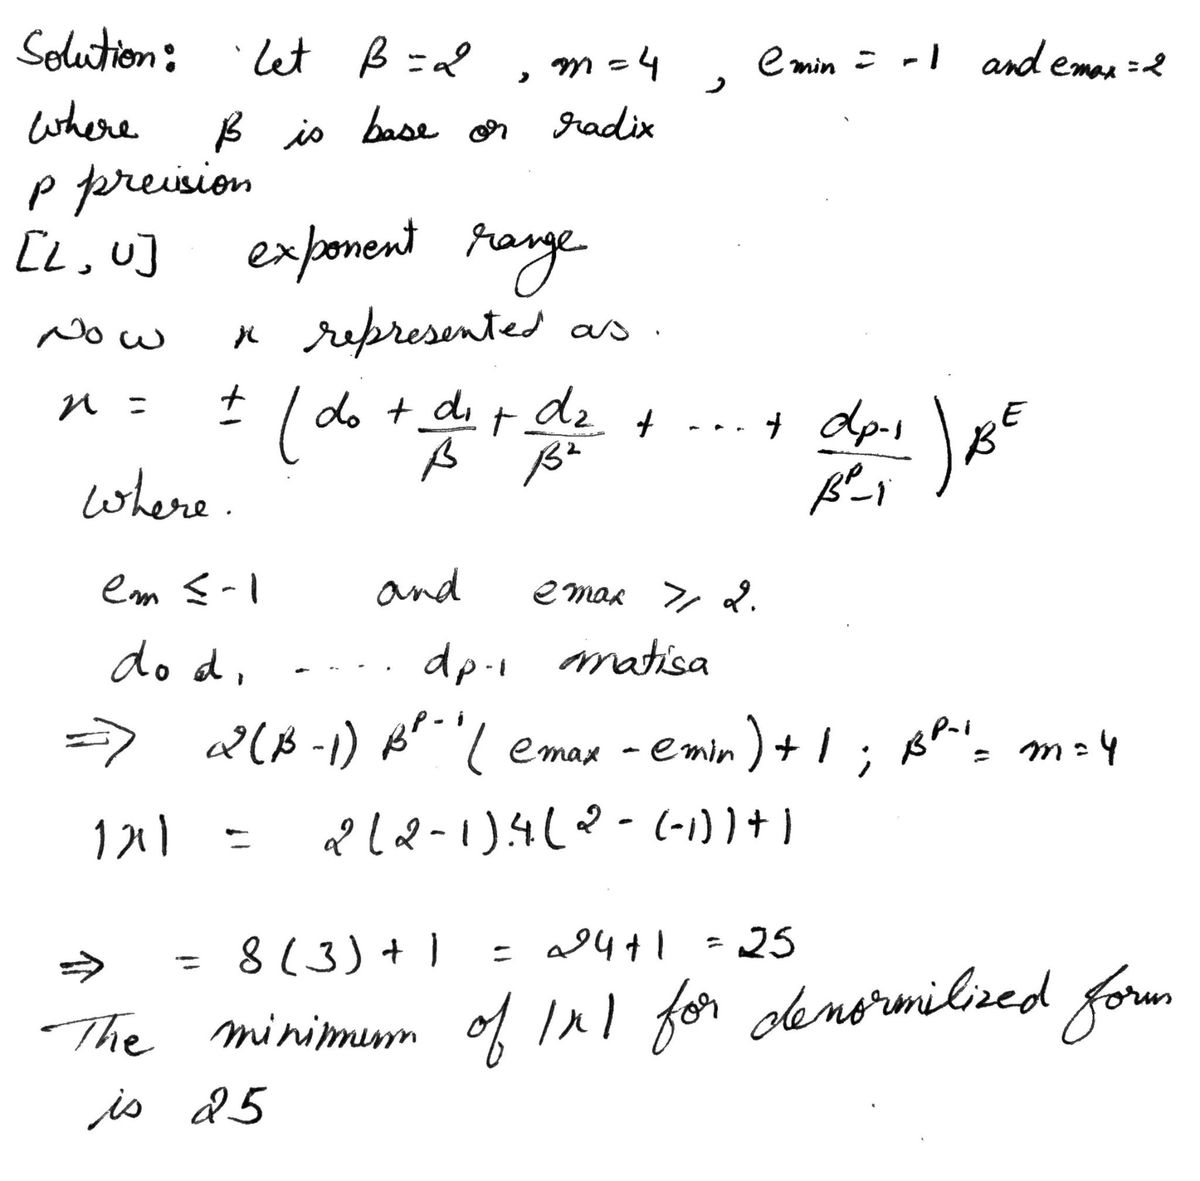 Solution: Let β = 2 , m = 4 , emin = -1 and emax = 2
Where β is base or radix
p precision
[L, U] exponent range
Now x represented as .
x = ± ( d0 + d1/β + d2/β² + ... + dp-1/β^p-1 ) β^E
Where.
em ≤ -1 and emax ≥ 2.
d0 d1 ..... dp-1 matisa
⇒ 2(β-1) β^p-1 ( emax - emin ) + 1 ; β^p-1 = m = 4
|x| = 2(2-1).4(2-(-1))+1
⇒ = 8(3)+1 = 24+1 = 25
The minimum of |x| for denormilized form
is 25